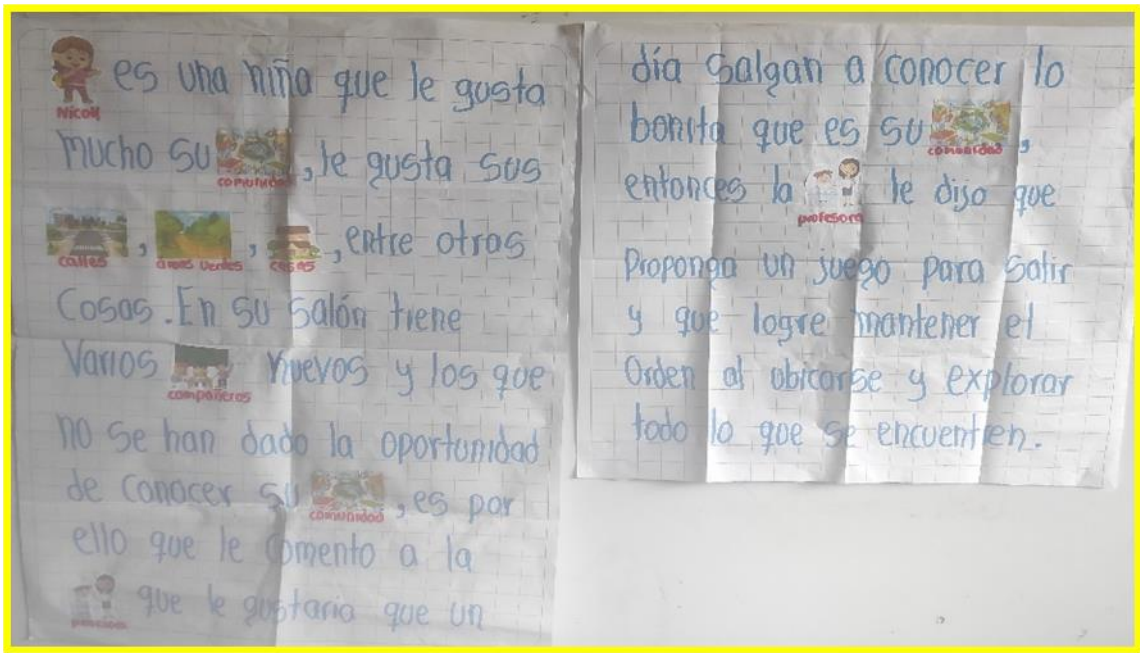 Nicoll es una niña que le gusta
mucho su comunidad, le gusta sus
calles, áreas verdes, casas, entre otras
Cosas. En su salón tiene
Varios compañeros nuevos y los que
no se han dado la oportunidad
de conocer su comunidad, es por
ello que le comento a la
profesora que le gustaria que un
día salgan a conocer lo
bonita que es su comunidad,
entonces la profesora le dijo que
Proponga un juego para salir
y que logre mantener el
Orden al ubicarse y explorar
todo lo que se encuentren.